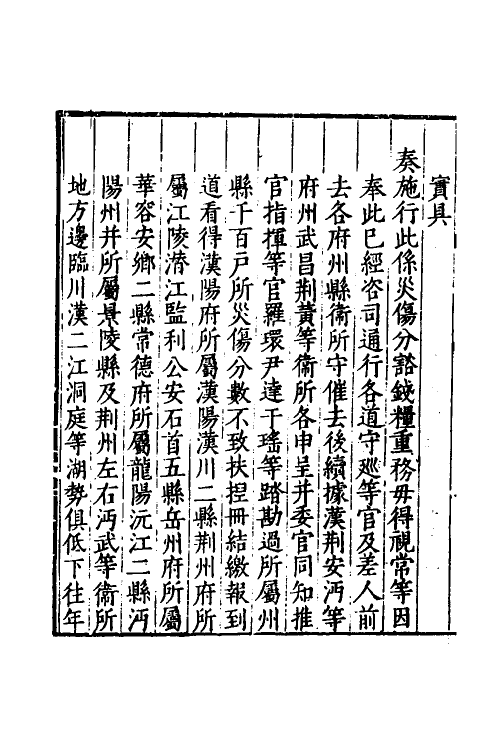 實具
奏施行此係災傷分豁錢糧重務毋得視常等因
奉此已經咨司通行各道守廵等官及差人前
去各府州縣衞所守催去後續據漢荆安沔等
府州武昌荆蘄等衞所各申呈并委官同知推
官指揮等官羅環尹達于瑤等踏勘過所屬州
縣千百戸所災傷分數不致扶捏冊結繳報到
道看得漢陽府所屬漢陽漢川二縣荆州府所
屬江陵潛江監利公安石首五縣岳州府所屬
華容安鄉二縣常德府所屬龍陽沅江二縣沔
陽州并所屬景陵縣及荆州左右沔武等衞所
地方邊臨川漢二江洞庭等湖勢俱低下往年